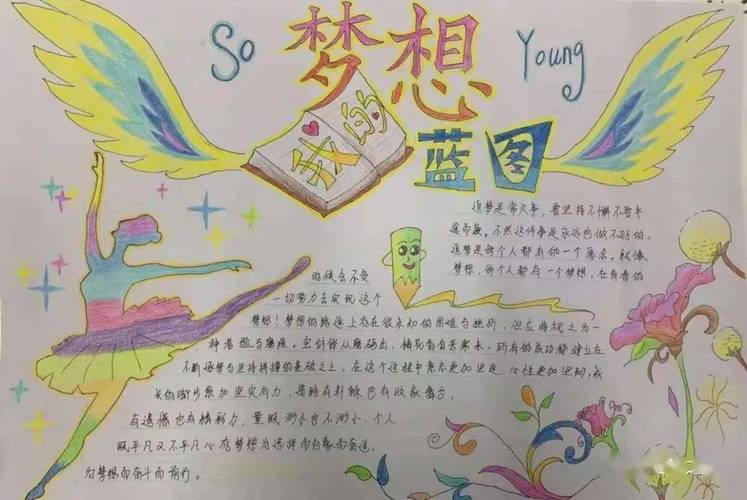 So 梦想 Young
我的
蓝图
追梦是常久事,要坚持不懈不要半
途而废。不然这件事是永远也做不好的。
追梦是每个人都有的一个。就像
梦想,每个人都有一个梦想,在有着的
时候会不
一切努力去实现这个
梦想!梦想的路途上存在很未知的困难与挫折,但应将视之为一
种考验与磨练。宝剑锋从磨砺出,梅花香自苦寒来,所有的成功都建立在
不断逐梦与坚持拼搏的基础之上,在这个过程中意志更加坚定 心性更加坚韧,成
长的脚步愈加坚实有力,道路有荆棘也有收获舞台,
有遗憾也有精彩力,量既渺小也不渺小,个人
既平凡又不平凡心存梦想为选择而自豪而奋进,
为梦想而奋斗而前行。